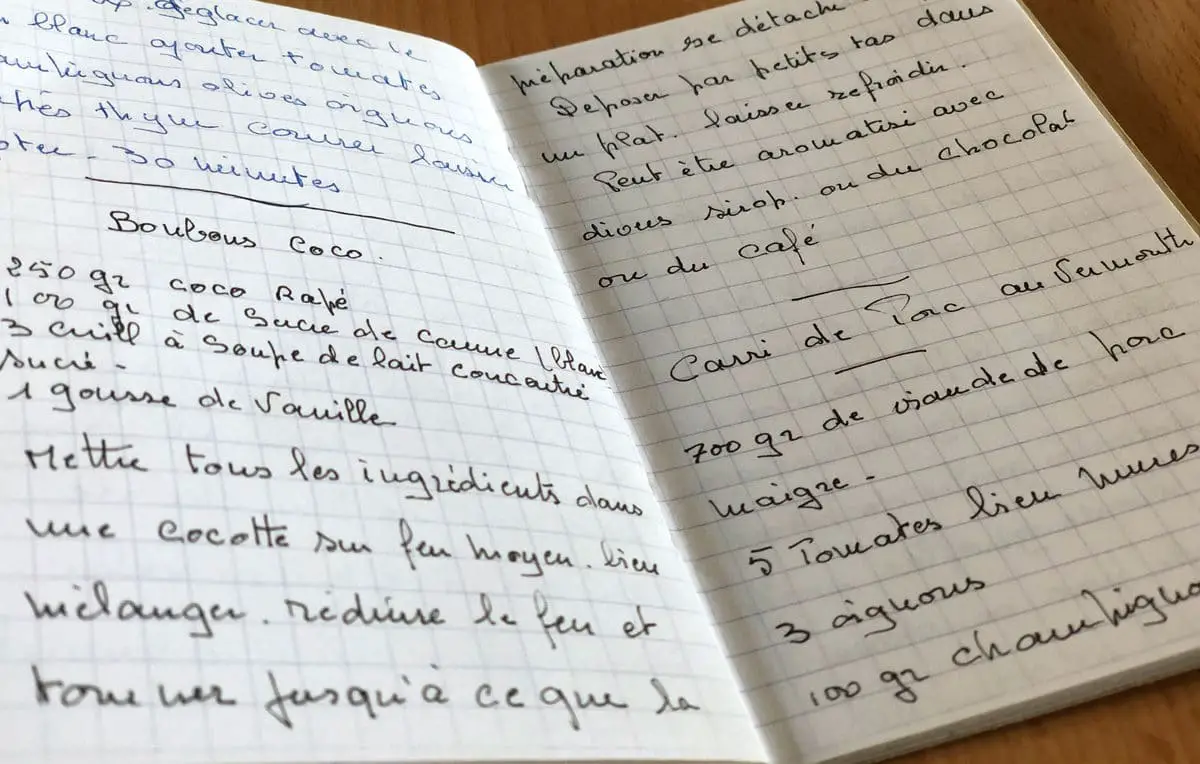 Déglacer avec le
blanc ajouter tomates
olives oignons
thym couvrer laisser
30 minutes
Boubous coco.
250 gr coco Rapé
100 gr de Sucre de Canne (blanc
3 cuill à Soupe de lait concentré
sucré -
1 gousse de Vanille
Mettre tous les ingrédients dans
une cocotte sur feu moyen. bien
mélanger. réduire le feu et
tourner jusqu'à ce que la
préparation se détache
Déposer par petits tas dans
un plat. laisser refroidir.
Peut être aromatisé avec
divers sirop. ou du chocolat
ou du café
Carri de Porc au Vermouth
700 gr de viande de porc
maigre -
5 Tomates bien mures
3 oignons
100 gr